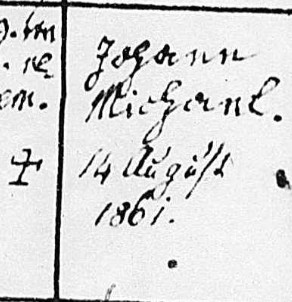 Johann
Michael.
✝ 14 August
1861.